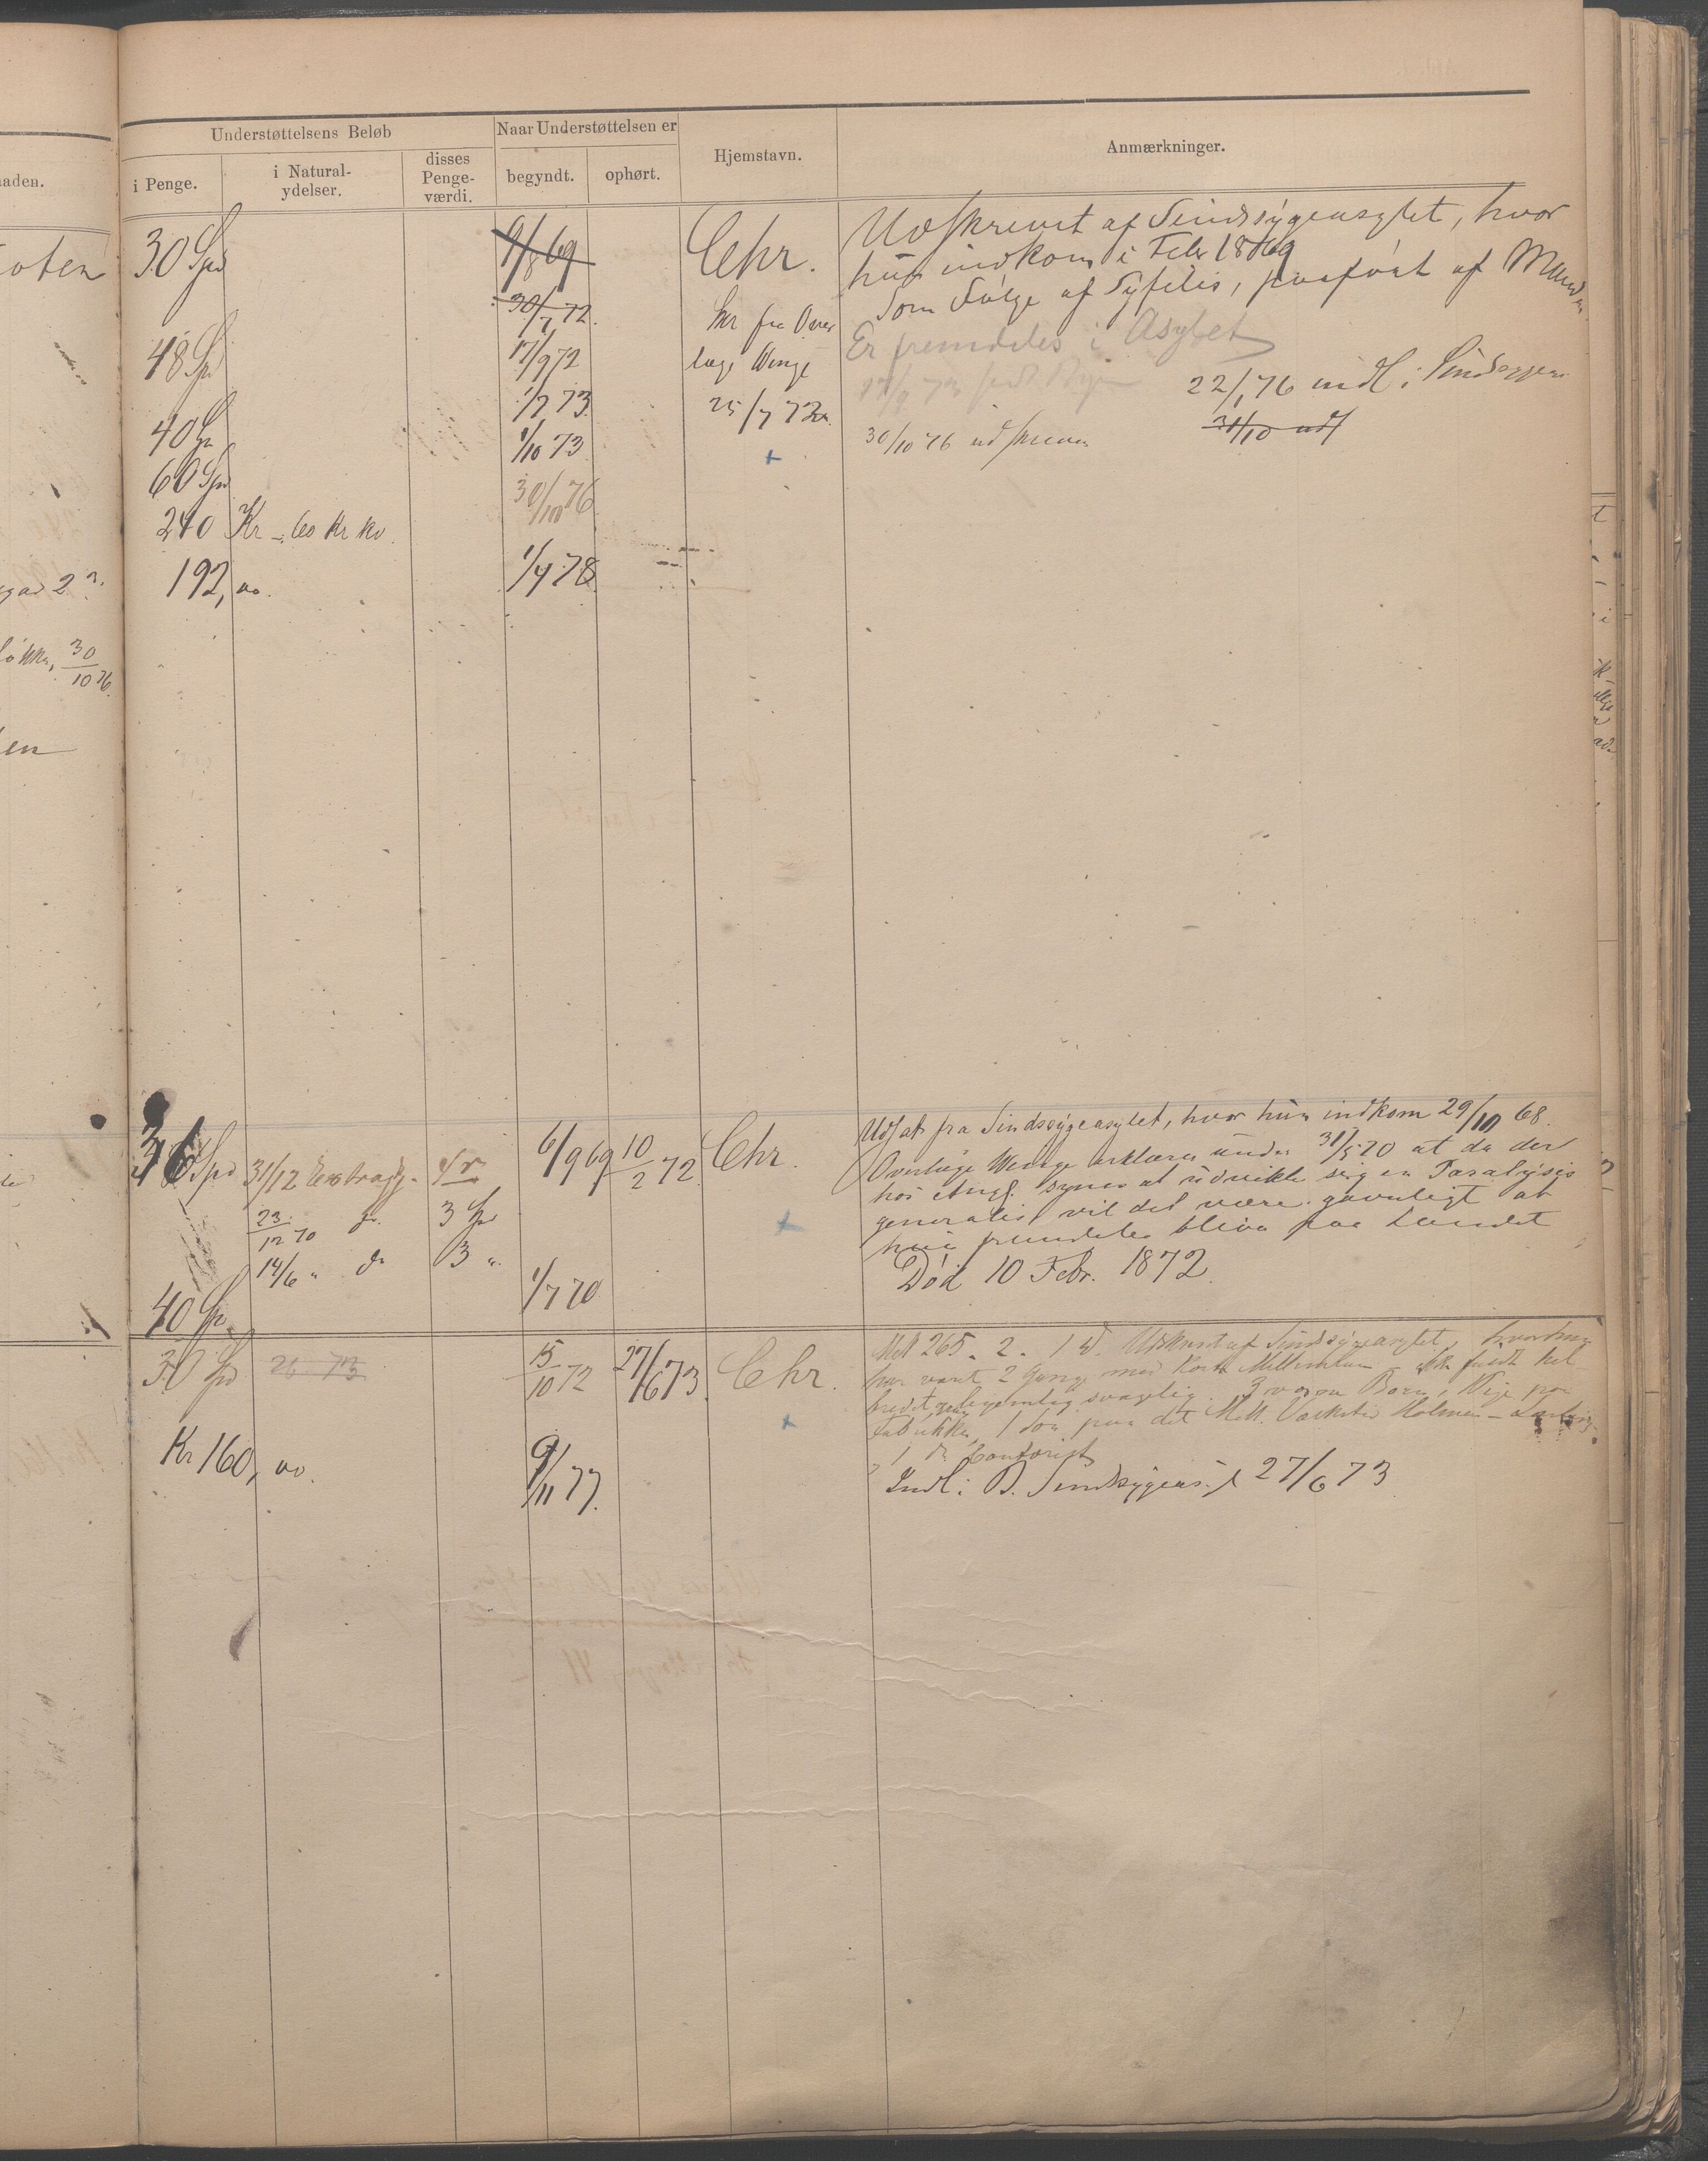 Understøttelsens Beløb
Naar Understøttelsen er
Hjemstavn.
Anmærkninger.
i Penge.
i Natural-
ydelser.
disses
Penge-
værdi.
begyndt.
ophørt.
aaden.
oten
30 Spd
9/8 69
Chr.
Udskrevet af Sindssygeasylet, hvor
hun indkom i Febr 1869
som Følge af Syfilis, paaført af Manden
30/7 72.
Skr fra Over
læge Winge
25/7 72
Er fremdeles i Asylet
48 Spd
17/9 72
22/1 76 indl i Sindssygeas
1/7 73
31/10 uds
40 Sp
1/10 73
30/10 76 udskreven
60 Spd
30/10 76
240 Kr - 60 Kr Kv.
192,
1/4 78
30/10 76.
en
36 Spd
31/12
6/9 69
10/2 72
Chr.
Udsat fra Sindssygeasylet, hvor hun indkom 29/10 68.
Overlæge Winge erklærer under 31/5 70 at da der
hos Angj. synes at udvikle sig en Paralysis
generalis, vil det være gavnligt at
hun fremdeles bliver paa Landet
Død 10 Febr. 1872.
23/12 70 do.
3 Spd
14/6 " do
3 "
1/7 70
40 Sp.
30 Spd
26 73
15/10 72
27/6 73
Chr.
Mel 265. 2. 1 W. Udskrevet af Sindssygeasylet, hvor hun
har været 2 Gange med kort Mellemrum
3 voxne Børn, 1 Pige paa
Fabrikken, 1 Søn paa det Mek. Værksted Holmen
1 do Kontorist
Indl i B. Sindssygeas. d 27/6 73
Kr 160,
9/11 77.